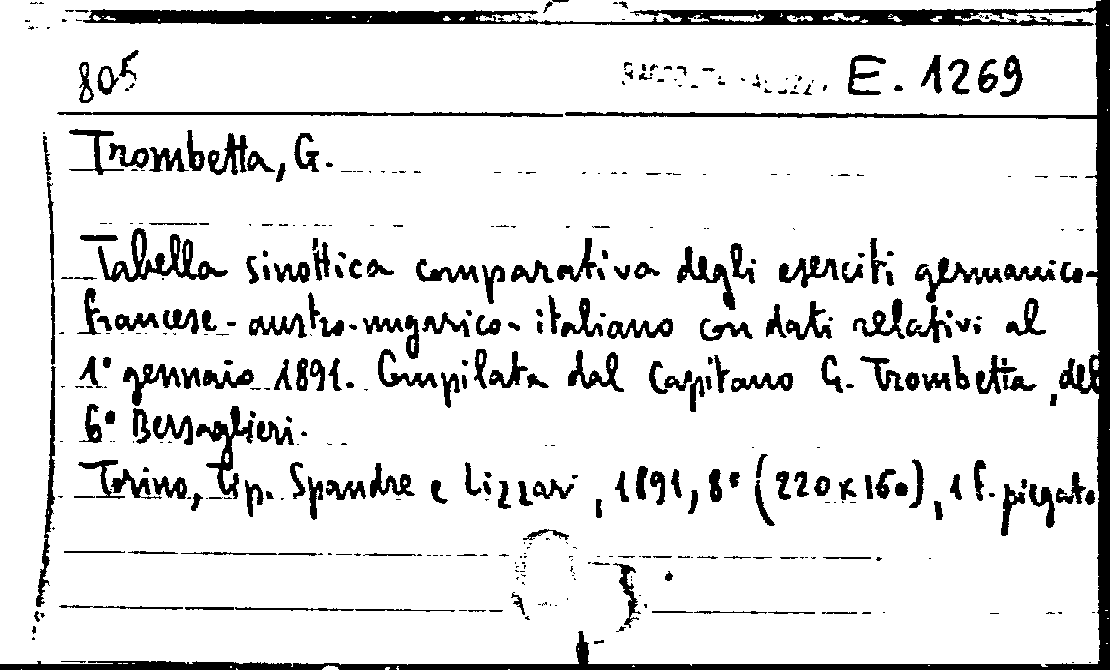 805 E. 1269
Trombetta, G.
Tabella sinottica comparativa degli eserciti germanico-
francese-austro-ungarico-italiano con dati relativi al
1° gennaio 1891. Compilata dal Capitano G. Trombetta, del
6° Bersaglieri.
Torino, tip. Spandre e Lizzari, 1891, 8° (220x160), 1 f. piegato